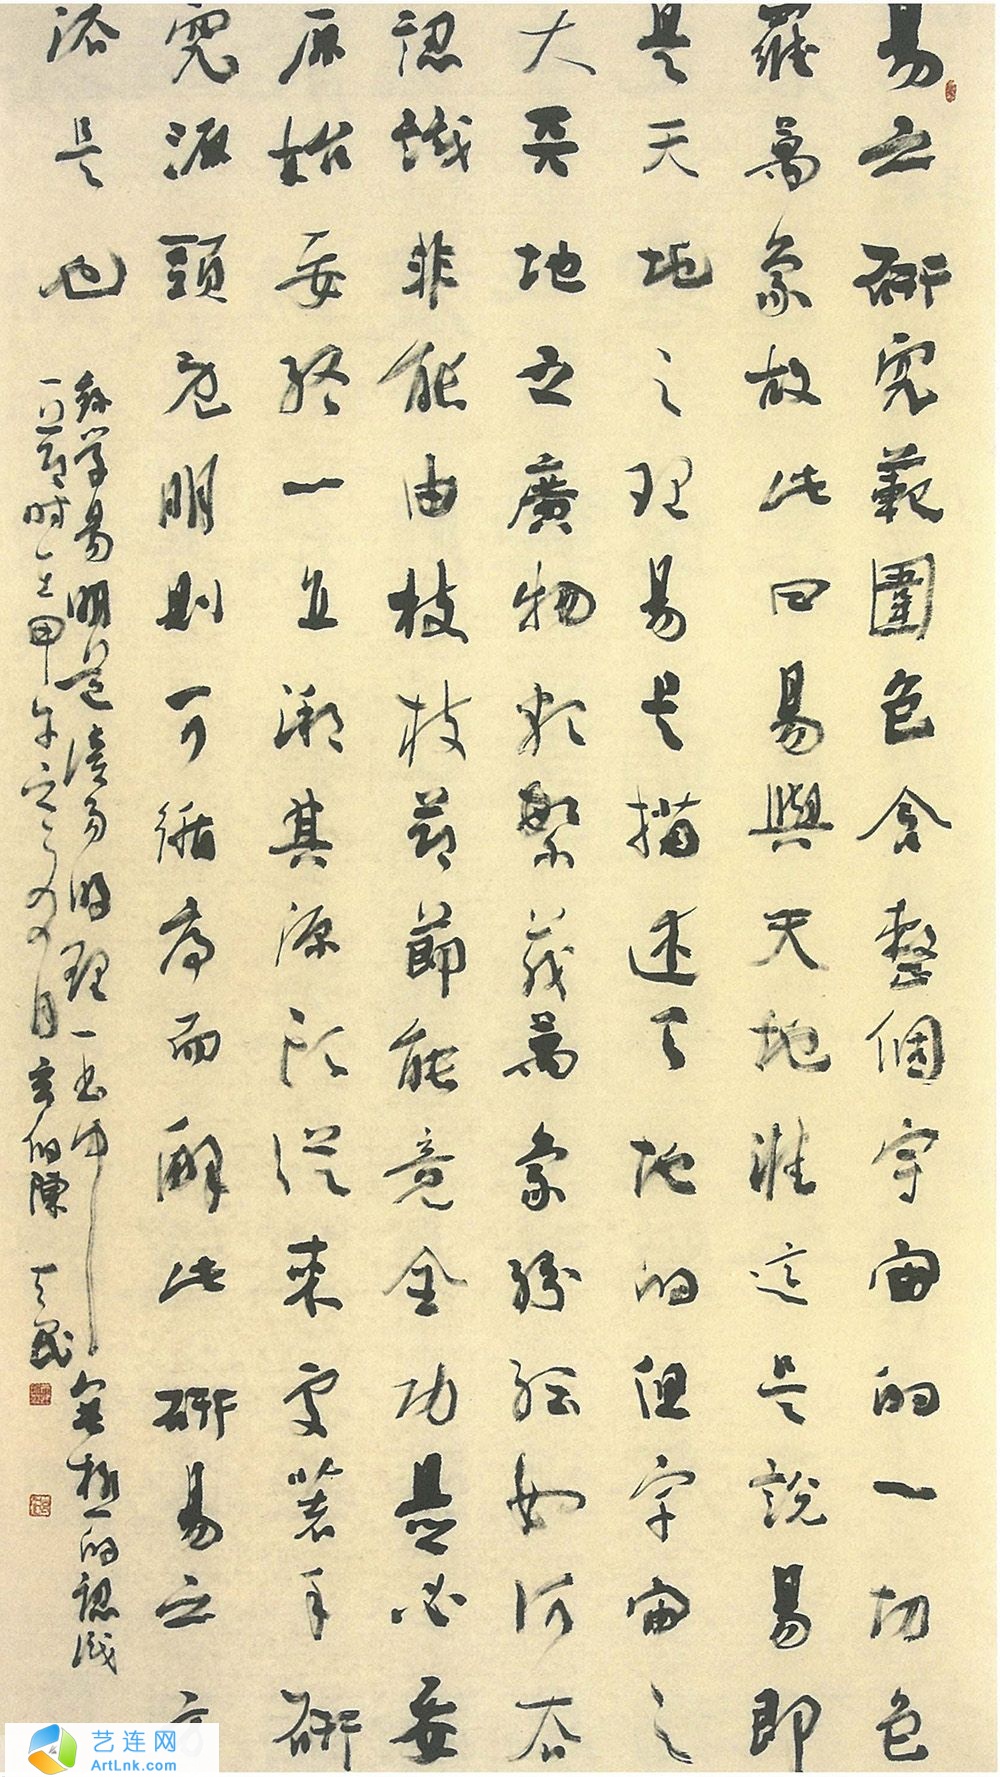 易之研究範圍包含整個宇宙的一切包
羅萬象故此曰易與天地准這是說易即
是天地之理易是描述天地的但宇宙之
大天地之廣物類繁茂萬象紛紜如何去
認識非能由枝枝節節能竟全功是必要
原始要終一直溯其源頭從來處著手研
究源頭既明則可循序而解此研易之方
法是也
錄學易明道讀易明理一書中無極的認識
一節時在甲午之月陳天民
艺连网
ArtLnk.com